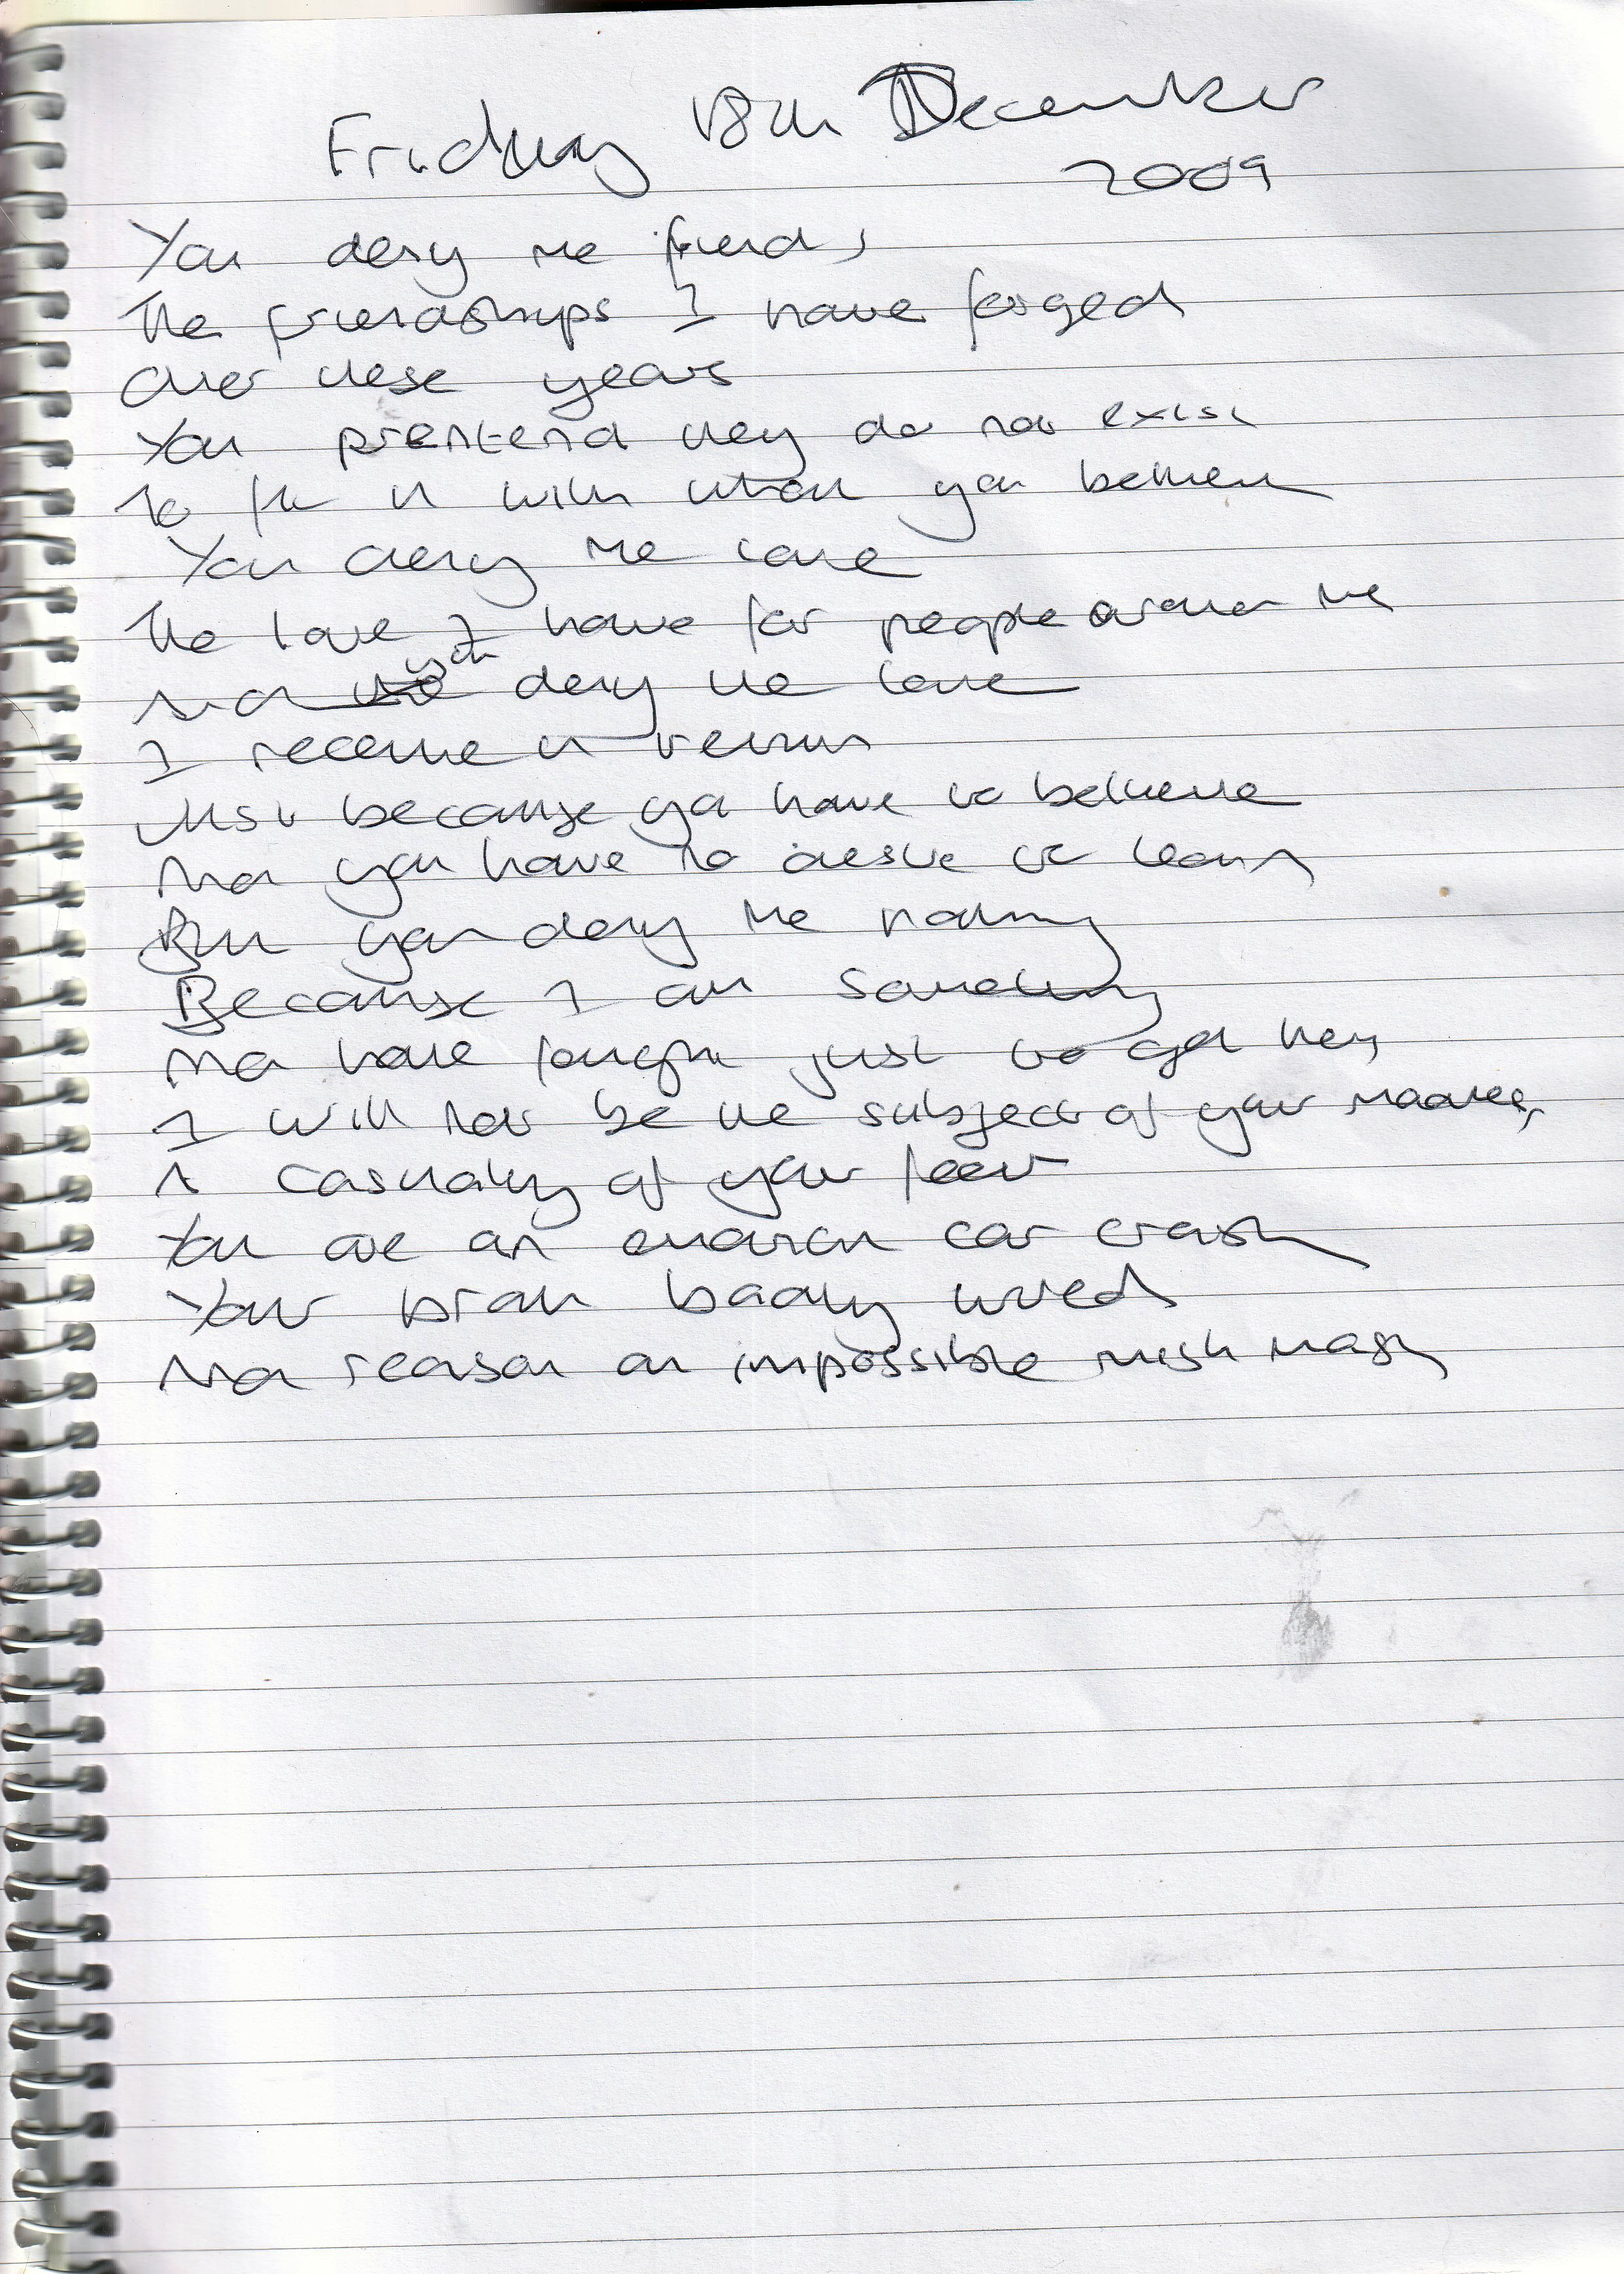 Friday 18th December
2009
You deny me friends
The friendships I have forged
Over these years
You prentend they do not exist
To fit in with what you believe
You deny me love
The love I have for people around me
And you deny the love
I receive in return
Just because you have to believe
And you have no desire to learn
But you deny me nothing
Because I am something
And have fought just to get here
I will not be the subject of your
A casualty of your fear
You are an emotion car crash
Your brain badly wired
And reason an impossible mish mash